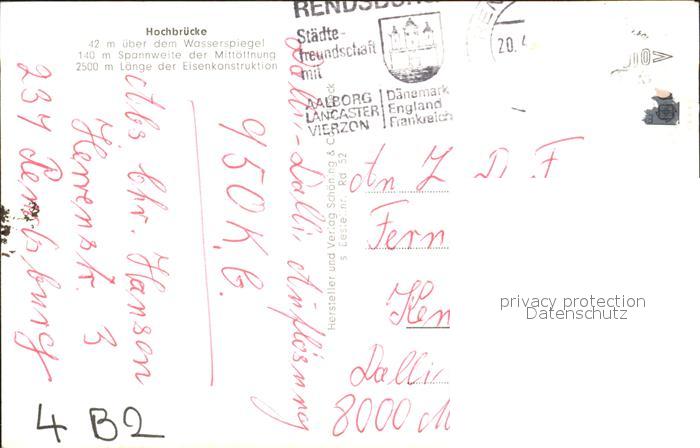 Hochbrücke
42 m über dem Wasserspiegel
140 m Spannweite der Mittöffnung
2500 m Länge der Eisenkonstruktion
RENDSBURG
Städte-
freundschaft
mit
AALBORG Dänemark
LANCASTER England
VIERZON Frankreich
20.4
Dalli-Dalli Auflösung
950 K.G.
Abs Chr. Hanson
Herrenstr. 3
237 Rendsburg
Hersteller und Verlag Schöning & C
Bestellnr. Rd 52
An Z D F
Fern
Ken
Dalli
8000 M
privacy protection
Datenschutz
4 B2